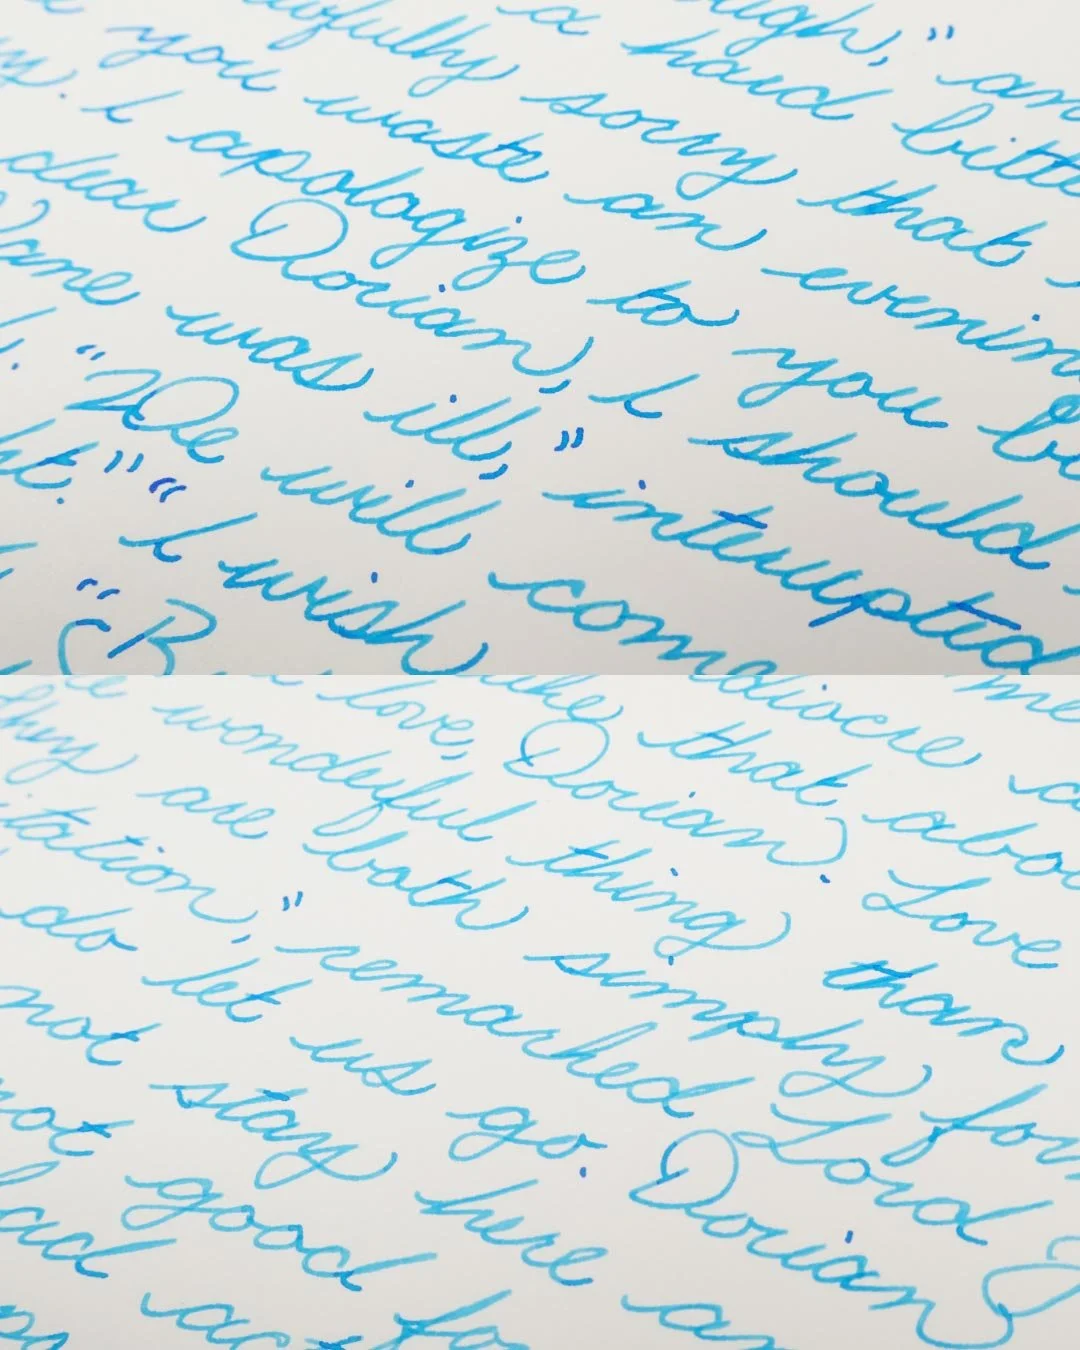 ugh,” an
a hard bitt
wfully sorry that
you waste an evenin
y. I apologize to you b
dear Dorian, I should
Vane was ill,” interupted
“We will com
ht.” “I wish
“B
me
diocre ac
like that abou
love, Dorian? Love
wonderful thing than
they are both simply for
itation,” remarked Lord
do let us go. Dorian
not stay here an
not good fo
ad act